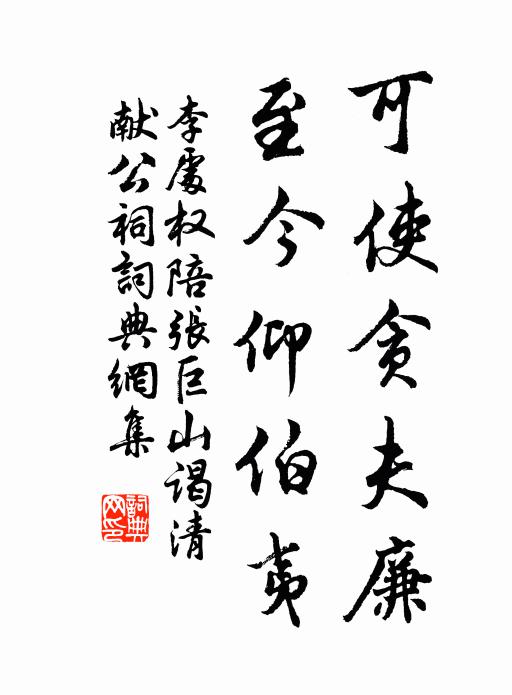 可使贪夫廉
至今仰伯夷
李處权陪張巨山谒清
献公祠詞典網集
詞典网印